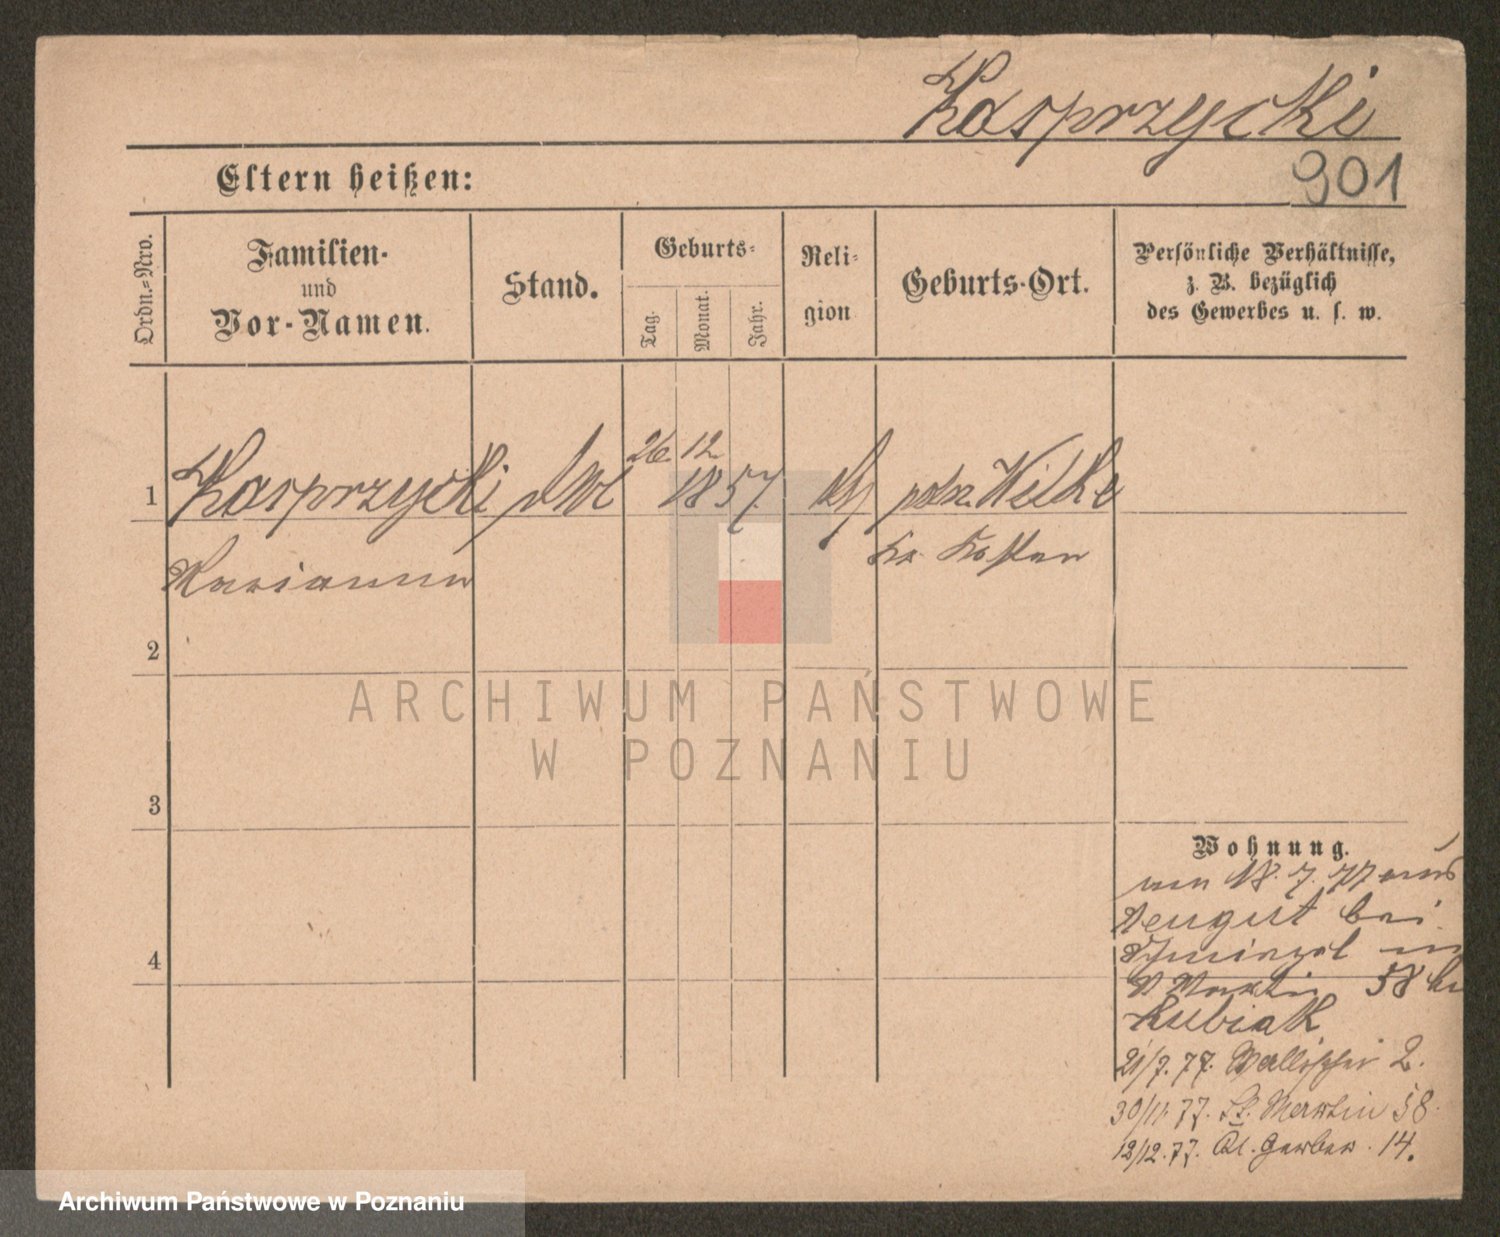 Kasprzycki
901
Eltern heißen:
Ordn.-Nro.
Familien-
und
Vor-Namen.
Stand.
Geburts-
Tag.
Monat.
Jahr.
Reli-
gion
Geburts-Ort.
Persönliche Verhältnisse,
z. B. bezüglich
des Gewerbes u. s. w.
26 12
1 Kasprzycki 1857. Wilke
Marianna Kr. Kosten
2
ARCHIWUM PAŃSTWOWE
W POZNANIU
3
Wohnung.
18. 7. 77 aus
Neugut bei
Schmiegel
4
Martin 58 bei
Kubiak
21/7. 77. Wallischei 2.
30/11. 77. St. Martin 58.
12/12. 77. Kl. Gerber. 14.
Archiwum Państwowe w Poznaniu